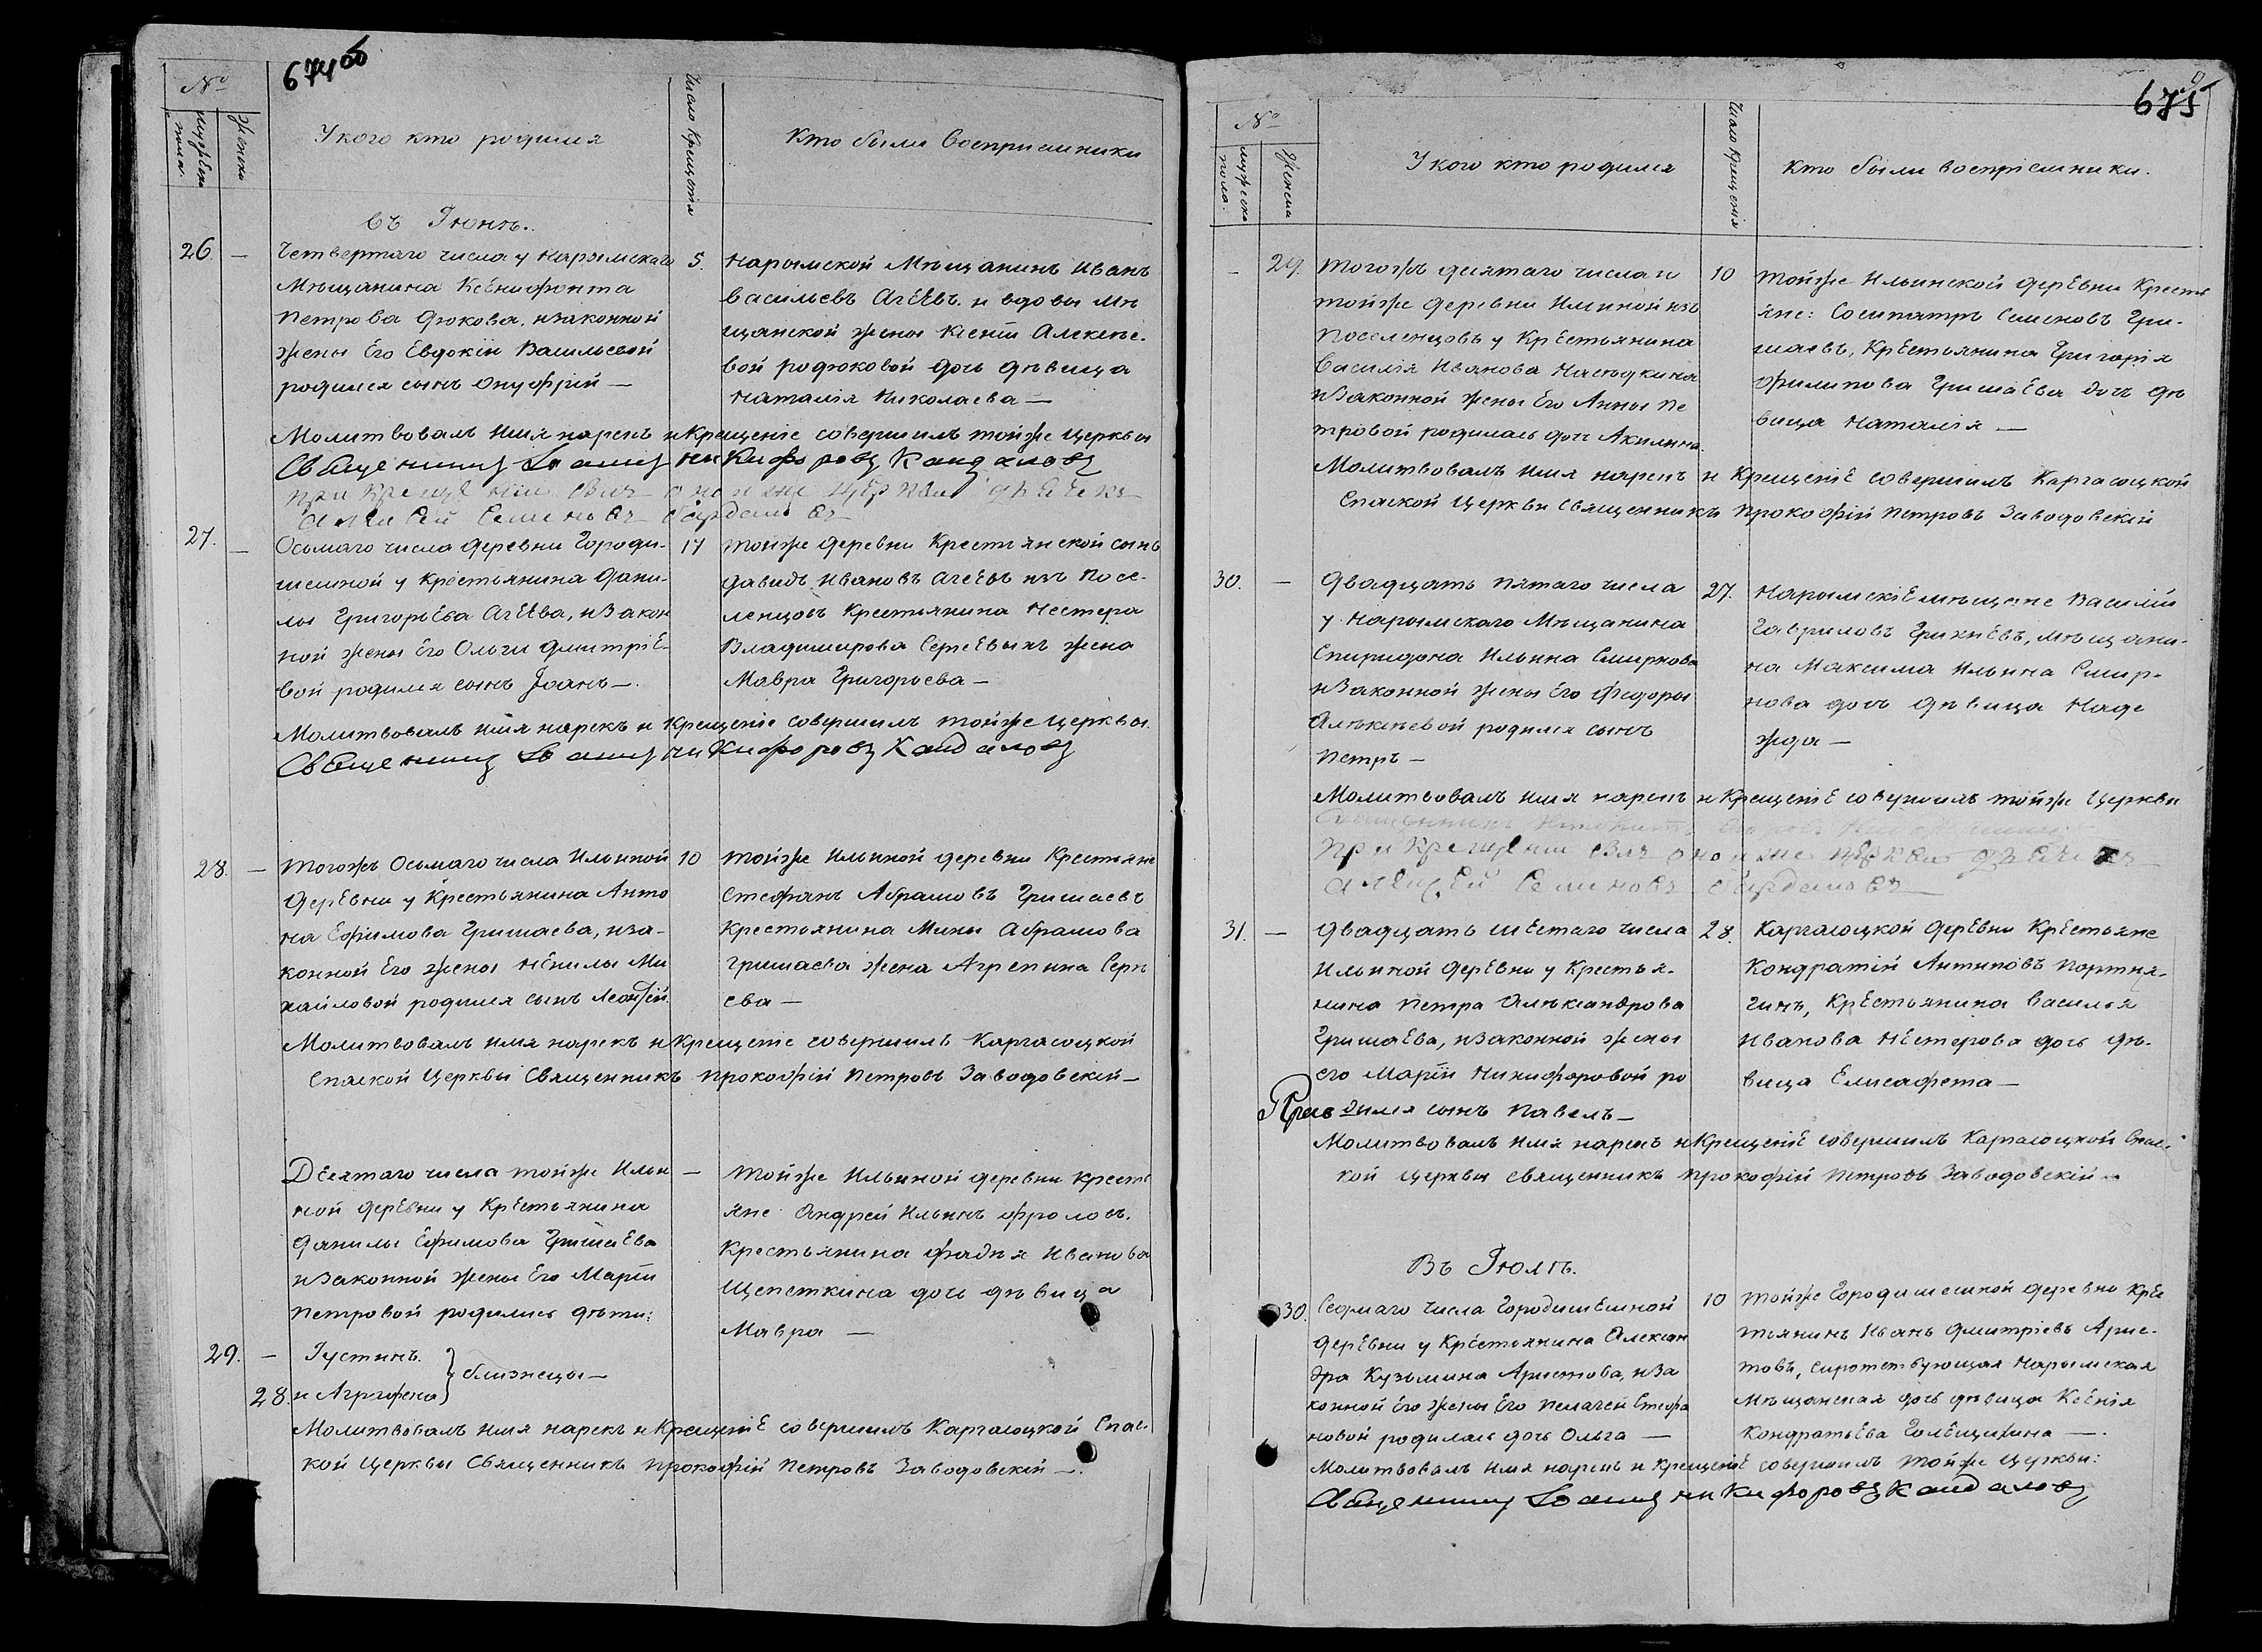 674об
№
мужеска пола.
женска
У кого кто родился
Число Крещенія
Кто были восприемники
въ Іюнѣ.
26. —
Четвертаго числа у Нарымскаго
Мѣщанина Ксенифонта
Петрова Дюкова, изаконной
жены Его Евдокіи Васильевой
родился сынъ Онуфрій —
5.
Нарымской Мѣщанинъ Иванъ
Васильевъ Агѣевъ. и вдовы Мѣ
щанской жены Ксеніи Алексѣе-
вой родюковой дочь дѣвица
Наталія Николаева —
Молитвовалъ имя нарекъ и Крещеніе совершилъ тойже церквы
Священникъ Іоаннъ Никифоровъ Кандаловъ
при крещеніи былъ оной же церкви дьячекъ
Алексѣй Семеновъ
27. —
Осьмаго числа деревни Городи-
шешной у Крестьянина Дани-
лы Григорьева Агѣева, изакон
ной жены Его Ольги Дмитріе-
вой родился сынъ Іоанъ —.
17
Тойже деревни Крестьянской сынъ
Давидъ Ивановъ Агѣевъ изъ Посе-
ленцовъ Крестьянина Нестера
Владимирова Сергѣевыхъ жена
Мавра Григорьева —
Молитвовалъ имя нарекъ и Крещеніе совершилъ тойже церквы.
Священникъ Іоаннъ Никифоровъ Кандаловъ
28. —
Тогожъ Осьмаго числа Ильиной
деревни у Крестьянина Анто
на Ефимова Гришаева, иза-
конной Его жены Ненилы Ми
хайловой родился сынъ Леонтій.
10
Тойже Ильиной деревни Крестьяне
Стефанъ Абрамовъ Гришаевъ
Крестьянина Мины Абрамова
Гришаева жена Агрепина Серг
ѣева —
Молитвовалъ имя нарекъ и Крещеніе совершилъ Каргасоцкой
Спаской Церквы Священникъ Прокофій Петровъ Заводовскій —
Десятаго числа тойже Ильи
ной деревни у Крестьянина
Данилы Ефимова Гришаева
изаконной жены Его Маріи
Петровой родились дѣти:
—
Тойже Ильиной деревни крестъ
яне Андрей Ильинъ Фроловъ.
Крестьянина Фадѣя Иванова
Щепеткина дочь дѣвица
Мавра —
29. — Іустинъ.
28. и Агрифена } близнецы —
Молитвовалъ имя нарекъ и Крещеніе совершилъ Каргасоцкой Спас-
кой Церквы Священникъ Прокофій Петровъ Заводовскій —.
675
№
мужеска пола.
Женска
У кого кто родился
Число Крещенія
Кто были воспріемники.
— 29.
Тогожъ десятаго числа и
тойже деревни Ильиной изъ
Поселенцовъ у Крестьянина
Василія Иванова Насѣдкина
изаконной жены Его Анны Пе
тровой родилась дочь Акилина.
10
Тойже Ильинской деревни Кресть
яне: Сосипатръ Семеновъ Гри-
шаевъ, Крестьянина Григорія
Филипова Гришаева дочь дѣ
вица Наталія —
Молитвовалъ имя нарекъ и Крещеніе совершилъ Каргасоцкой
Спаской Церквы Священникъ Прокофій Петровъ Заводовскій
30. —
Двадцать пятаго числа
у Нарымскаго Мѣщанина
Спиридона Ильина Смирнова
изаконной жены Его Федоры
Алексѣевой родился сынъ
Петръ —
27.
Нарымскіе мѣщане Василій
Гавриловъ Грихнѣвъ, мѣщани-
на Максима Ильина Смир-
нова дочь дѣвица Наде
жда —
Молитвовалъ имя нарекъ и Крещеніе совершилъ тойже Церкви
Священникъ
при крещеніи былъ оной же церкви дьячекъ
Алексѣй Семеновъ
31. —
Двадцать шестаго числа
Ильиной деревни у Крестья-
нина Петра Александрова
Гришаева, изаконной жены
его Маріи Никифоровой ро
дился сынъ Павелъ —
28.
Каргасоцкой деревни Крестьяне
Кондратій Антиповъ Портня-
гинъ, Крестьянина Василья
Иванова Нестерова дочь дѣ-
вица Елисафета —
Молитвовалъ имя нарекъ и Крещеніе совершилъ Каргасоцкой Спас-
кой церквы священникъ Прокофій Петровъ Заводовскій —
Въ Іюлѣ.
30.
Седмаго числа Городишешной
деревни у Крестьянина Алексан
дра Кузьмина Аристова, иза
конной Его жены Его Пелагеи Стефа
новой родилась дочь Ольга —
10
Тойже Городишешной деревни Кре
тьянинъ Иванъ Дмитріевъ Арис-
товъ, сиротствующая Нарымская
Мѣщанская дочь дѣвица Ксенія
Кондратьева Голещихина —.
Молитвовалъ имя нарекъ и Крещеніе совершилъ тойже церкви:
Священникъ Іоаннъ Никифоровъ Кандаловъ